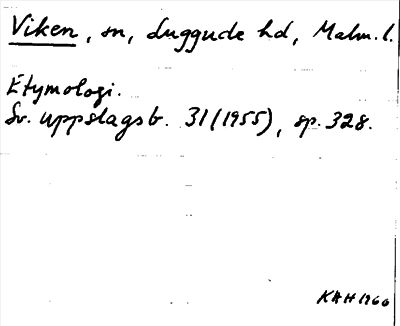 Viken, sn, Luggude hd, Malm. l.
Etymologi.
Sv. uppslagsb. 31 (1955), sp. 328.
KAH 1960